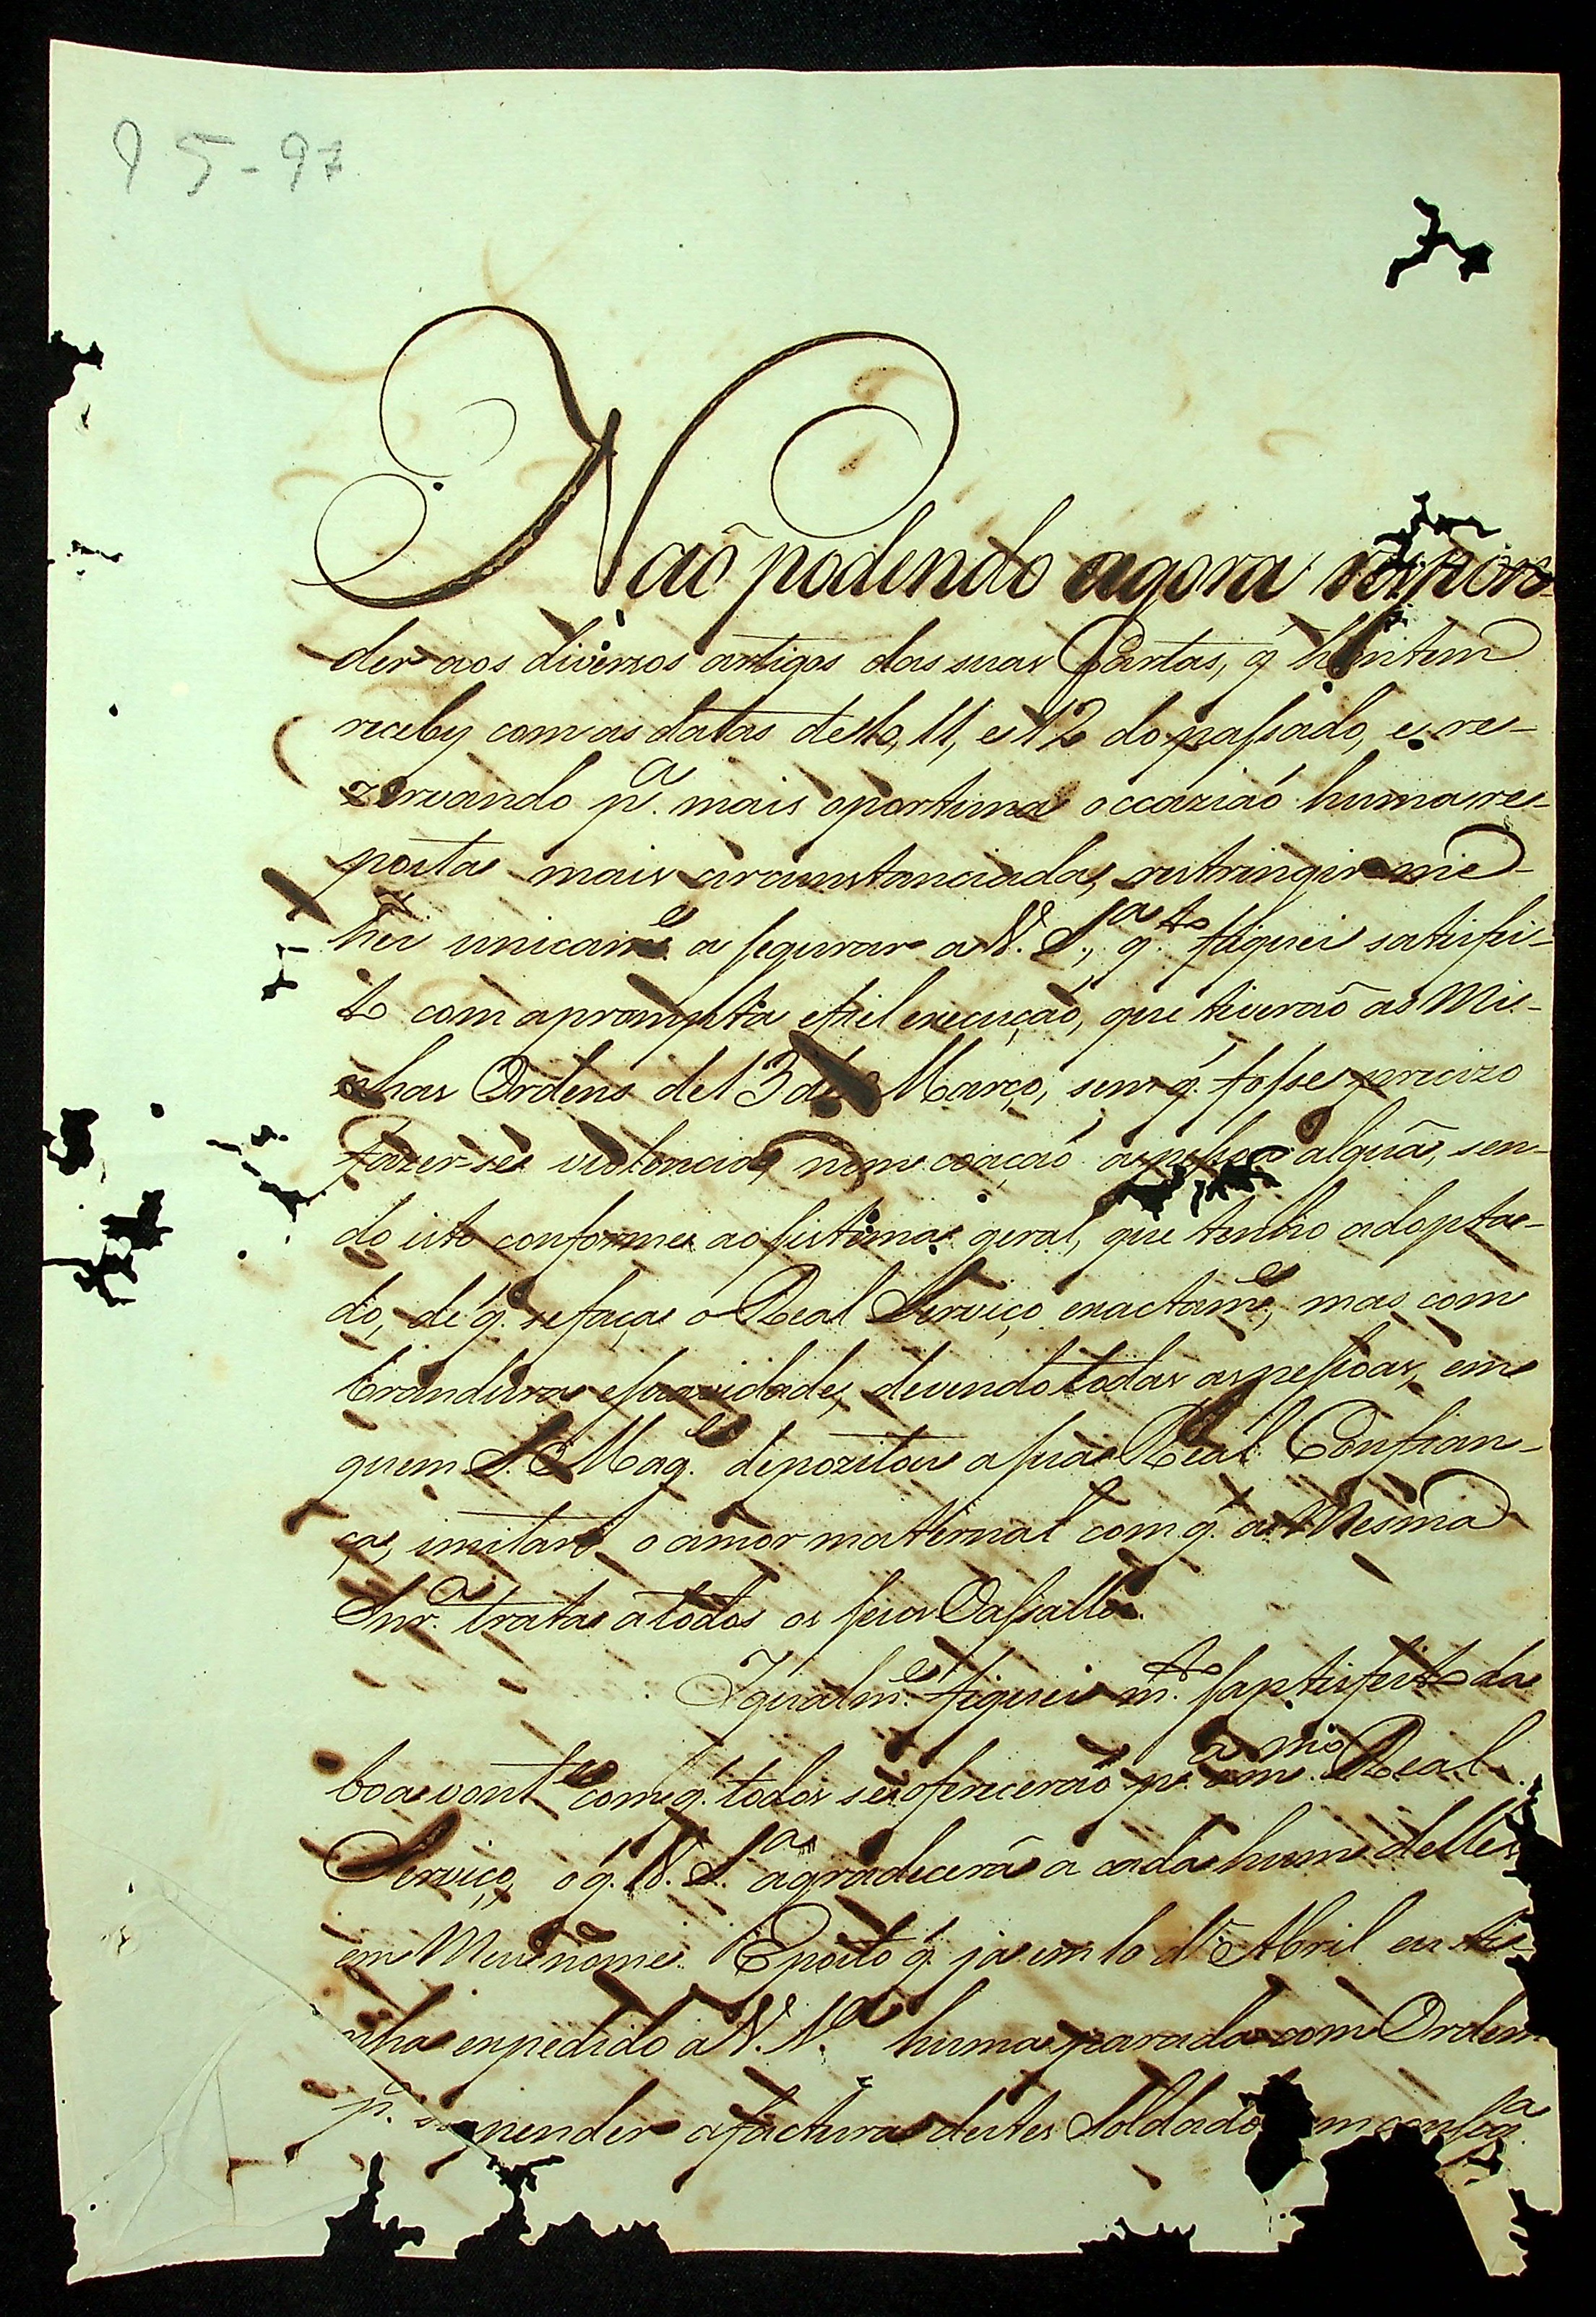 95-97
Naõ podendo agora respon-
der aos diversos artigos das suas Cartas, q̃ hontem
receby com as datas de 10, 11, e 12 do passado, e re-
zervando pᵃ. mais oportuna occaziaõ huma res-
posta mais circumstanciada, restringir-me-
hei unicamᵉ. a segurar a V. Sᵃ., q̃ fiquei satisfei-
to com a prompta e fiel execuçaõ, que tiveraõ as Mi-
nhas Ordens de 13 de Março, sem q̃. fosse precizo
fazer-se violencia, nem coaçaõ a pessoa algũa, sen-
do isto conforme ao sistema geral, que tenho adopta-
do, de q̃. se faça o Real Serviço exactamᵉ, mas com
brandura e suavidade, devendo todas as pessoas, em
quem S. Magᵉ. depozitou a sua Real Confian-
ça, imitar o amor maternal com q̃. a Mesma
Snrᵃ. trata a todos os seus Vassallos.
Igualmᵉ. fiquei mᵗᵒ. saptisfeito da
boa vontᵉ com q̃. todos se ofereceraõ pᵃ. o mᵐᵒ. Real
Serviço, o q̃. V. Sᵃ. agradecerá a cada hum delles
em Meu nome. Eposto q̃. ja em 10 d'Abril eu ti-
nha expedido a V. Sᵃ. huma parada com Ordem
pᵃ. suspender a factura destes Soldados